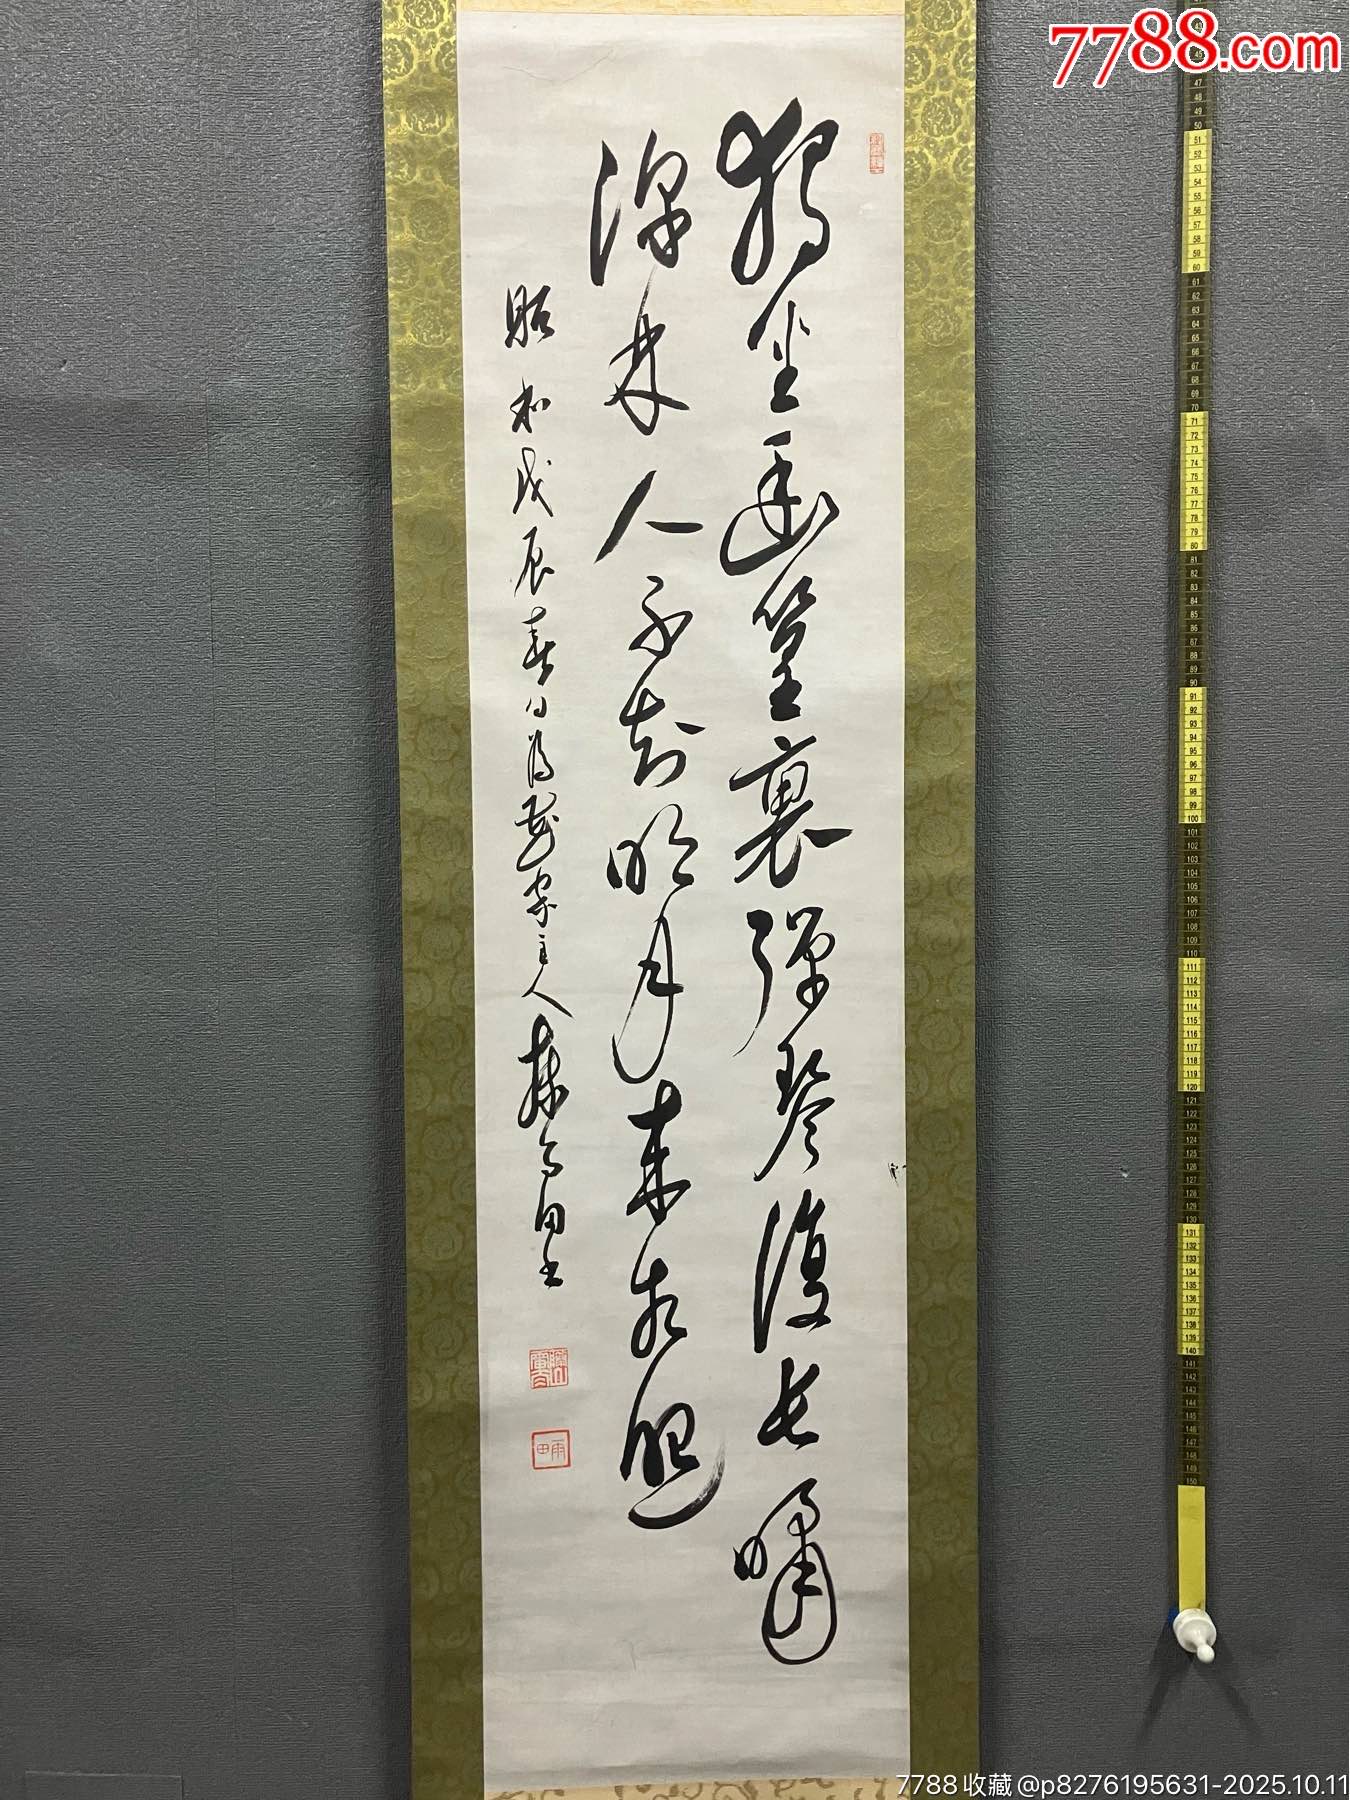 7788.com
獨坐幽篁裏彈琴復長嘯
深林人不知明月来相照
昭和戊辰春日為
主人
雨田書
雨田
7788收藏@p8276195631-2025.10.11